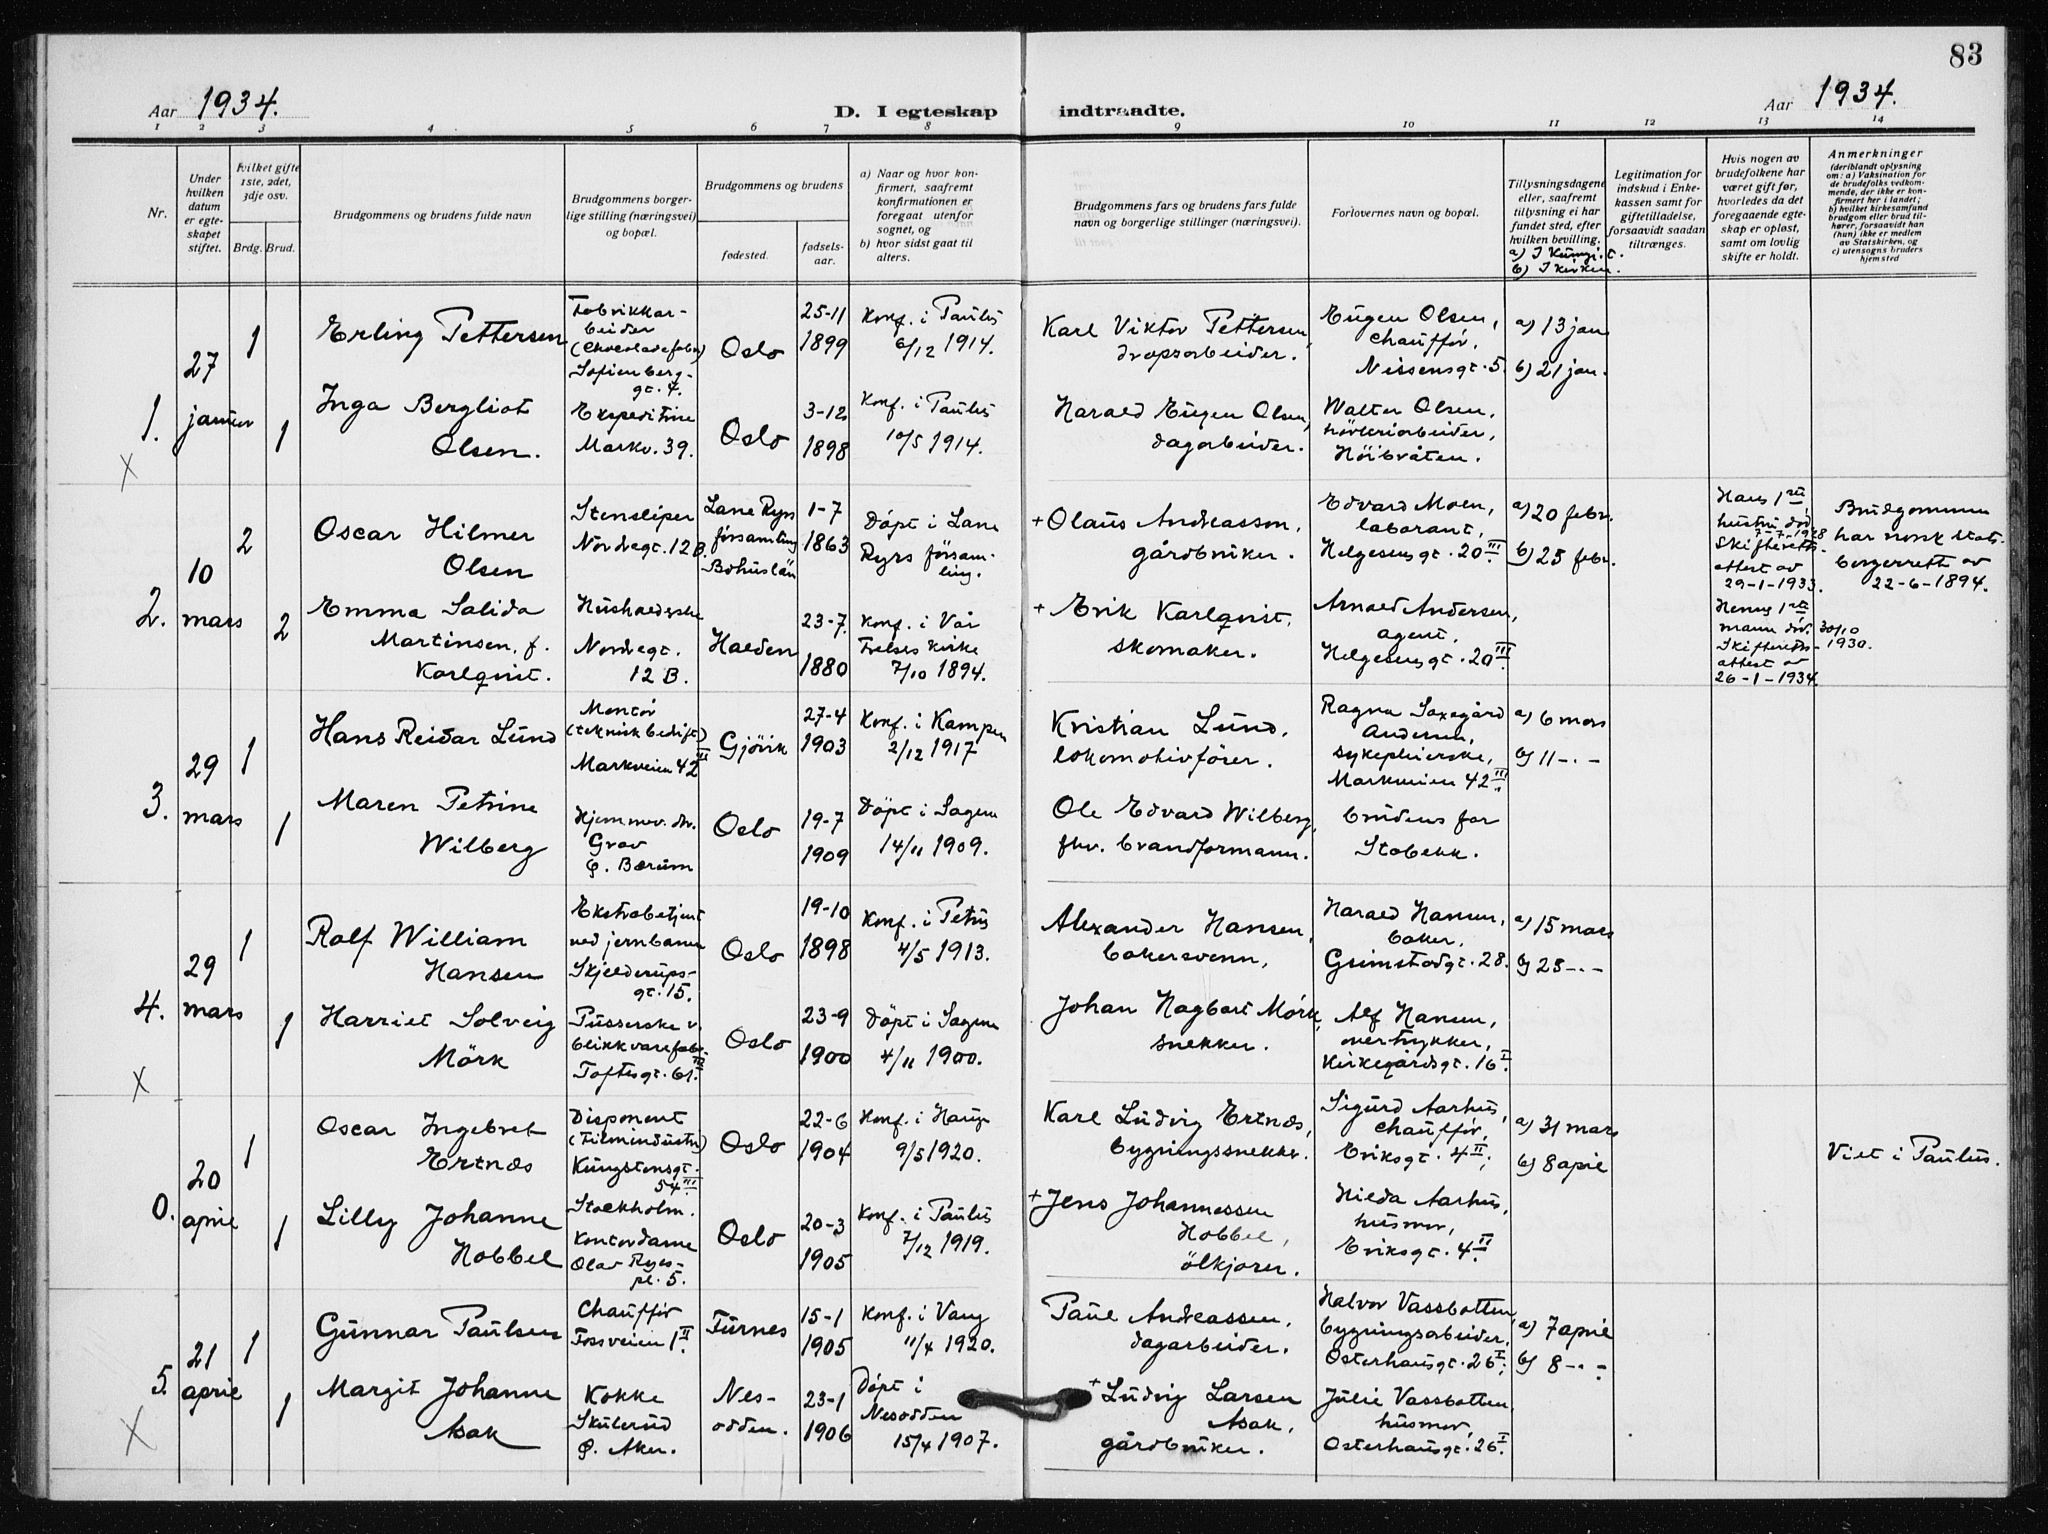 83
Aar 1934. D. I egteskap indtraadte. Aar 1934.
1 2 3 4 5 6 7 8 9 10 11 12 13 14
Nr.
Under hvilken datum er egteskapet stiftet.
Hvilket gifte 1ste, 2det, 3dje osv.
Brdg. Brud.
Brudgommens og brudens fulde navn
Brudgommens borgerlige stilling (næringsvei) og bopæl.
Brudgommens og brudens
fødested.
fødselsaar.
a) Naar og hvor konfirmert, saafremt konfirmationen er foregaat utenfor sognet, og
b) hvor sidst gaat til alters.
Brudgommens fars og brudens fars fulde navn og borgerlige stillinger (næringsvei).
Forlovernes navn og bopæl.
Tillysningsdagene eller, saafremt tillysning ei har fundet sted, efter hvilken bevilling.
b) I kirken.
Legitimation for indskud i Enkekassen samt for giftetilladelse, forsaavidt saadan tiltrænges.
Hvis nogen av brudefolkene har været gift før, hvorledes da det foregaaende egteskap er opløst, samt om lovlig skifte er holdt.
Anmerkninger
(deriblandt oplysning om: a) Vaksination for de brudefolks vedkommende, der ikke er konfirmert her i landet; b) hvilket kirkesamfund brudgom eller brud tilhører, forsaavidt han (hun) ikke er medlem av Statskirken, og c) utensogns bruders hjemsted
1.
27
januar
1
Erling Pettersen
Fabrikkar-
beider
(Chocoladefabr.)
Sofienberg-
gt. 4.
Oslo
25-11
1899
Konf. i Paulus
6/12 1914.
Karl Viktor Pettersen,
dropsarbeider.
Eugen Olsen,
chauffør,
Nissensgt. 5.
a) 13 jan
b) 21 jan.
1
Inga Bergliot
Olsen.
Ekspeditrise
Markv. 39.
Oslo
3-12
1898
Konf. i Paulus
10/5 1914.
Harald Eugen Olsen,
dagarbeider.
Walter Olsen,
høvleriarbeider,
Høibråten.
X
2.
10
mars
2
Oscar Hilmer
Olsen
Stensliper
Nordregt. 12 B.
Lane Ryrs
församling
Bohuslän
1-7
1863
Döpt i Lane
Ryrs försam-
ling.
+ Olaus Andreasson,
gårdbruker.
Edvard Moen,
laborant,
Helgesensgt. 20 III
a) 20 febr.
b) 25 febr.
Hans 1ste
hustru død
7-7-1928
Skifteretts-
attest av
29-1-1933.
Brudgommen
har norsk stats-
borgerrett av
22-6-1894.
2
Emma Salida
Martinsen, f.
Karlqvist.
Husholderske
Nordregt.
12 B.
Halden
23-7.
1880
Konf. i Vår
Frelsers kirke
7/10 1894.
+ Erik Karlqvist,
skomaker.
Arnold Andersen,
agent,
Helgesensgt. 20 III.
Hennes 1ste
mann død 30/10
1930.
Skifteretts-
attest av
26-1-1934.
3.
29
mars
1
Hans Reidar Lund
Montør
(teknisk bedrift)
Markveien 42 III
Gjøvik
27-4
1903
Konf. i Kampen
2/12 1917
Kristian Lund,
lokomotivfører.
Ragna Saxegård
Andersen,
sykepleierske,
Markveien 42 III
a) 6 mars
b) 11 -.-
1
Maren Petrine
Wilberg
Hjemmev. dtr.
Grav
p. Bærum
Oslo
19-7
1909
Döpt i Sagene
14/11 1909.
Ole Edvard Wilberg,
fhv. brandformann.
brudens far
Stabekk.
4.
29
mars
1
Rolf William
Hansen
Ekstrabetjent
ved jernbanen
Skjelderups-
gt. 15.
Oslo
19-10
1898
Konf. i Petrus
4/5 1913.
Alexander Hansen,
bakersvenn,
Harald Hansen,
baker,
Grimstadgt. 28.
a) 15 mars
b) 25 -.-
1
Harriet Solveig
Mörk
Pusserske v.
blikkvarefabr.
Toftesgt. 61. III
Oslo
23-9
1900
Döpt i Sagene
4/11 1900.
Johan Hagbart Mörk,
snekker.
Alf Hansen,
overtrykker,
Kirkegårdsgt. 16 I.
X
0.
20
april
1
Oscar Ingebret
Ertnæs
Disponent
(Filmindustri)
Kungstensgt.
54 III.
Stockholm.
Oslo
22-6
1904
Konf. i Hauge
9/5 1920.
Karl Ludvig Ertnæs,
bygningssnekker.
Sigurd Aarhus,
chauffør,
Eriksgt. 4 II,
a) 31 mars
b) 8 april
Viet i Paulus.
1
Lilly Johanne
Hobbel
Kontordame
Olav Ryes-
pl. 5.
Oslo
20-3
1905
Konf. i Paulus
7/12 1919.
+ Jens Johannessen
Hobbel,
ølkjører.
Hilda Aarhus,
husmor,
Eriksgt. 4 II.
5.
21
april
1
Gunnar Paulsen
Chauffør
Fossveien 1 II.
Furnes
15-1
1905
Konf. i Vang
11/4 1920.
Paul Andreassen,
dagarbeider.
Halvor Vassbotten,
bygningsarbeider,
Osterhausgt. 26 I,
a) 7 april
b) 8 -.-
1
Margit Johanne
Asak
Kokke
Skulerud
p. Aker.
Nes-
odden.
23-1
1906
Döpt i
Nesodden
15/4 1907.
+ Ludvig Larsen
Asak,
gårdbruker.
Julie Vassbotten,
husmor,
Osterhausgt. 26 I.
X